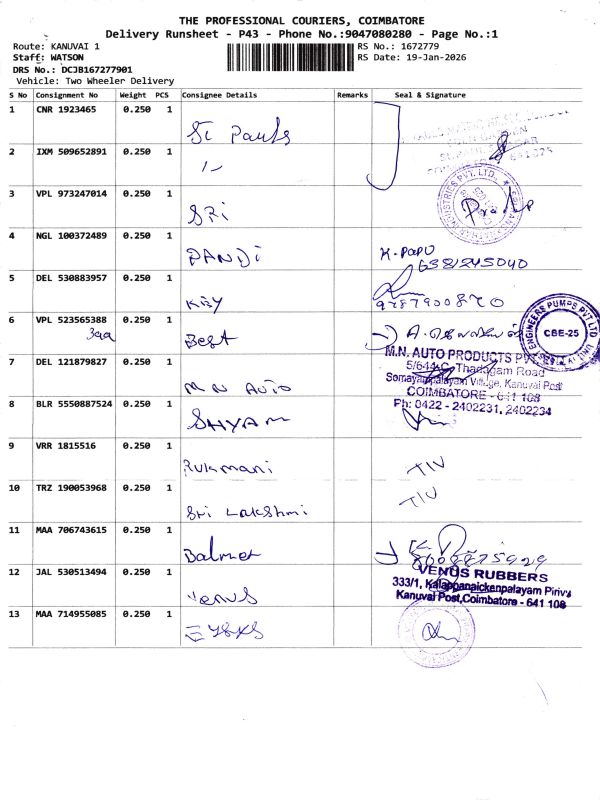 THE PROFESSIONAL COURIERS, COIMBATORE
Delivery Runsheet - P43 - Phone No.:9047080280 - Page No.:1
Route: KANUVAI 1
RS No.: 1672779
Staff: WATSON
RS Date: 19-Jan-2026
DRS No.: DCJB167277901
Vehicle: Two Wheeler Delivery
S No Consignment No Weight PCS Consignee Details Remarks Seal & Signature
1 CNR 1923465 0.250 1 St Pauls
2 IXM 509652891 0.250 1
3 VPL 973247014 0.250 1 SRi
4 NGL 100372489 0.250 1 PANDi K. PAPU
6381245040
5 DEL 530883957 0.250 1 KBY 9787900870
6 VPL 523565388 0.250 1 Best
ENGINEERS PUMPS PVT LTD CBE-25
7 DEL 121879827 0.250 1 M N AUTO
M.N. AUTO PRODUCTS PVT
5/644-C, Thadagam Road
Somayampalayam Village, Kanuvai Post
COIMBATORE - 641 108
Ph: 0422 - 2402231, 2402234
8 BLR 5550887524 0.250 1 SHYAM
9 VRR 1815516 0.250 1 Rukmani
10 TRZ 190053968 0.250 1 Sri Lakshmi
11 MAA 706743615 0.250 1 Balmer
12 JAL 530513494 0.250 1 Venus
VENUS RUBBERS
333/1, Kalappanaickenpalayam Pirivu
Kanuvai Post, Coimbatore - 641 108
13 MAA 714955085 0.250 1